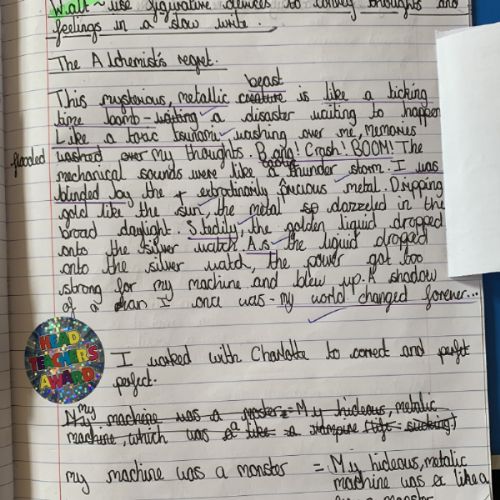 Walt - use figurative devices to convey thoughts and
feelings in a slow write.
The Alchemist's regret.
beast
This mysterious, metallic creature is like a ticking
time bomb - waiting a disaster waiting to happen
Like a toxic tsunami washing over me, memories
flooded washed over my thoughts. Bang! Crash! BOOM! The
mechanical sounds were like a thunder storm. I was
blinded by the extrodinarily precious metal. Dripping
gold like the sun, the metal so dazzled in the
broad daylight. Stedily, the golden liquid dropped
onto the silver watch. As the liquid dropped
onto the silver watch, the power got too
strong for my machine and blew up. A shadow
of a man I once was - my world changed forever...
HEAD
TEACHER'S
AWARD
I worked with Charlotte to correct and perfect
perfect.
My
My machine was a monster = My hideous, metalic
machine, which was a like a vampire (life sucking)
my machine was a monster = My hideous, metalic
machine was like a